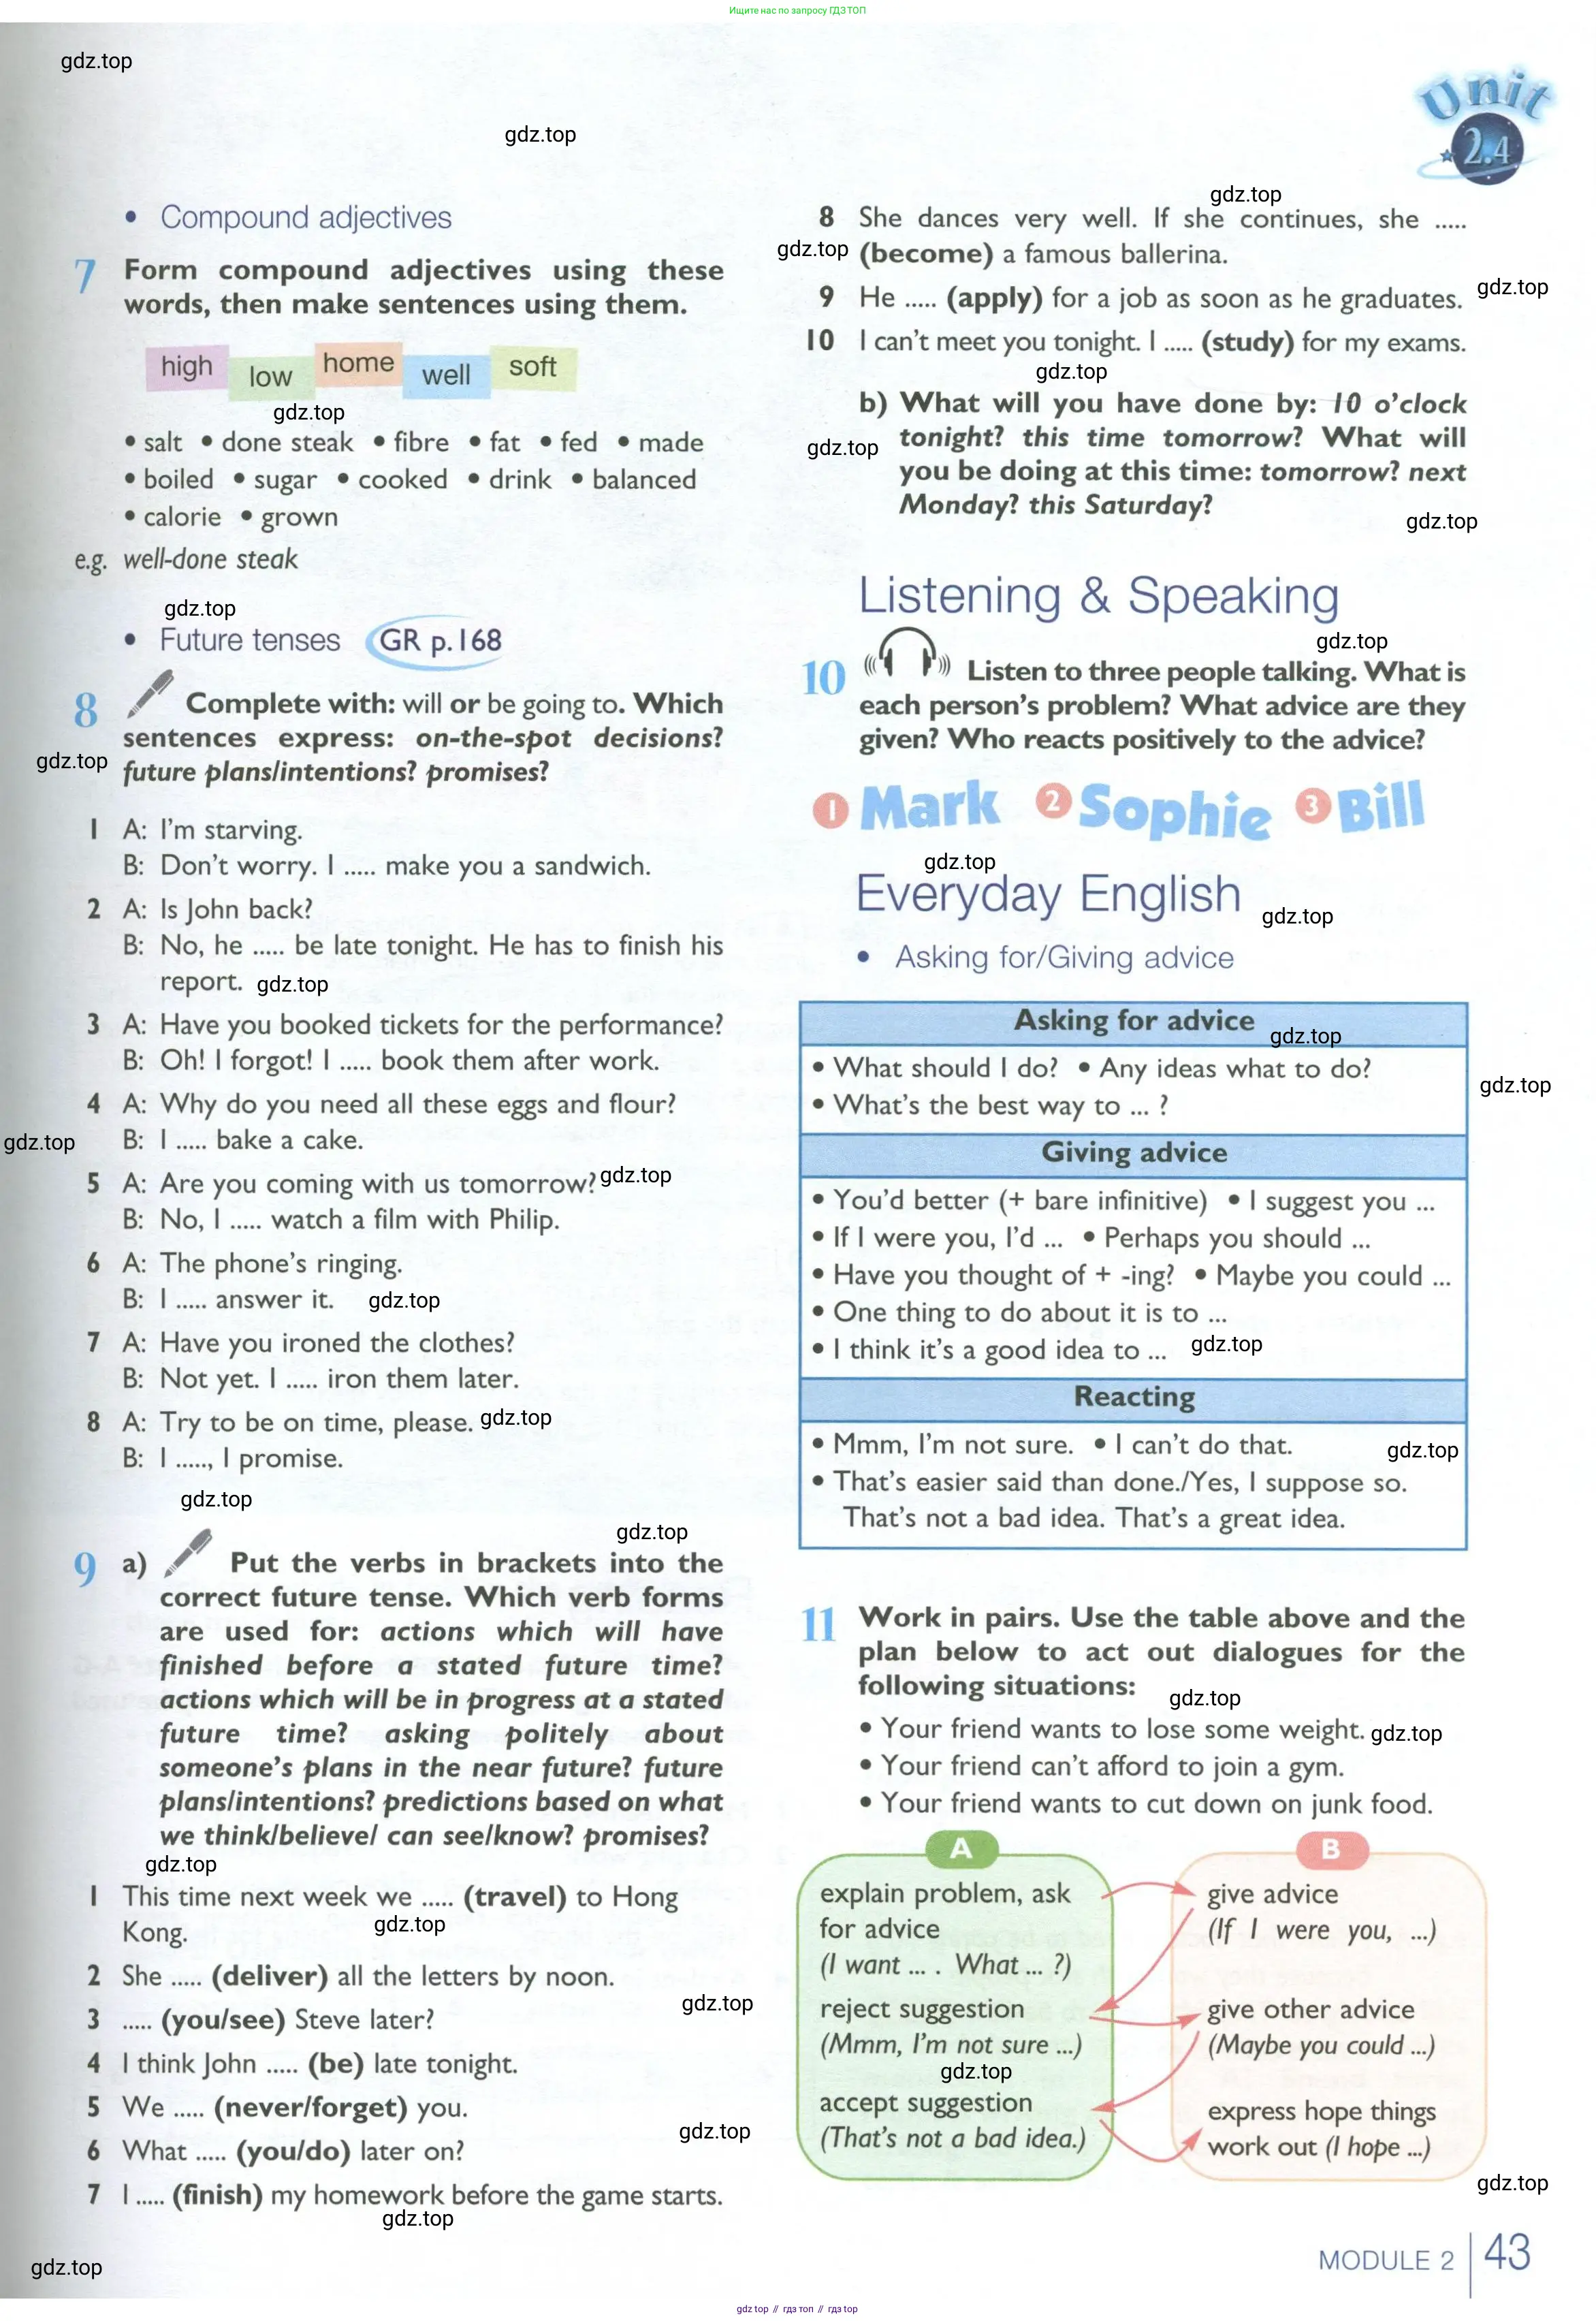 Ищите нас по запросу ГДЗ ТОП
gdz.top
gdz.top
Unit
2.4
• Compound adjectives
7 Form compound adjectives using these
words, then make sentences using them.
high low home well soft
gdz.top
• salt • done steak • fibre • fat • fed • made
• boiled • sugar • cooked • drink • balanced
• calorie • grown
e.g. well-done steak
gdz.top
• Future tenses GR p.168
8 Complete with: will or be going to. Which
sentences express: on-the-spot decisions?
gdz.top
future plans/intentions? promises?
1 A: I'm starving.
B: Don't worry. I ..... make you a sandwich.
2 A: Is John back?
B: No, he ..... be late tonight. He has to finish his
report. gdz.top
3 A: Have you booked tickets for the performance?
B: Oh! I forgot! I ..... book them after work.
4 A: Why do you need all these eggs and flour?
gdz.top B: I ..... bake a cake.
5 A: Are you coming with us tomorrow? gdz.top
B: No, I ..... watch a film with Philip.
6 A: The phone's ringing.
B: I ..... answer it. gdz.top
7 A: Have you ironed the clothes?
B: Not yet. I ..... iron them later.
8 A: Try to be on time, please. gdz.top
B: I ....., I promise.
gdz.top
gdz.top
9 a) Put the verbs in brackets into the
correct future tense. Which verb forms
are used for: actions which will have
finished before a stated future time?
actions which will be in progress at a stated
future time? asking politely about
someone's plans in the near future? future
plans/intentions? predictions based on what
we think/believe/ can see/know? promises?
gdz.top
1 This time next week we ..... (travel) to Hong
Kong. gdz.top
2 She ..... (deliver) all the letters by noon.
gdz.top
3 ..... (you/see) Steve later?
4 I think John ..... (be) late tonight.
5 We ..... (never/forget) you.
gdz.top
6 What ..... (you/do) later on?
7 I ..... (finish) my homework before the game starts.
gdz.top
gdz.top
gdz.top
8 She dances very well. If she continues, she .....
gdz.top (become) a famous ballerina.
gdz.top
9 He ..... (apply) for a job as soon as he graduates.
10 I can't meet you tonight. I ..... (study) for my exams.
gdz.top
b) What will you have done by: 10 o'clock
gdz.top tonight? this time tomorrow? What will
you be doing at this time: tomorrow? next
Monday? this Saturday?
gdz.top
Listening & Speaking
gdz.top
10 Listen to three people talking. What is
each person's problem? What advice are they
given? Who reacts positively to the advice?
1 Mark 2 Sophie 3 Bill
gdz.top
Everyday English
gdz.top
• Asking for/Giving advice
Asking for advice
gdz.top
• What should I do? • Any ideas what to do?
gdz.top
• What's the best way to ... ?
Giving advice
• You'd better (+ bare infinitive) • I suggest you ...
• If I were you, I'd ... • Perhaps you should ...
• Have you thought of + -ing? • Maybe you could ...
• One thing to do about it is to ...
• I think it's a good idea to ... gdz.top
Reacting
• Mmm, I'm not sure. • I can't do that. gdz.top
• That's easier said than done./Yes, I suppose so.
That's not a bad idea. That's a great idea.
11 Work in pairs. Use the table above and the
plan below to act out dialogues for the
following situations:
gdz.top
• Your friend wants to lose some weight. gdz.top
• Your friend can't afford to join a gym.
• Your friend wants to cut down on junk food.
A
explain problem, ask
for advice
(I want ... . What ... ?)
reject suggestion
(Mmm, I'm not sure ...)
gdz.top
accept suggestion
(That's not a bad idea.)
B
give advice
(If I were you, ...)
give other advice
(Maybe you could ...)
express hope things
work out (I hope ...)
gdz.top
MODULE 2 43
gdz.top // гдз топ // гдз top